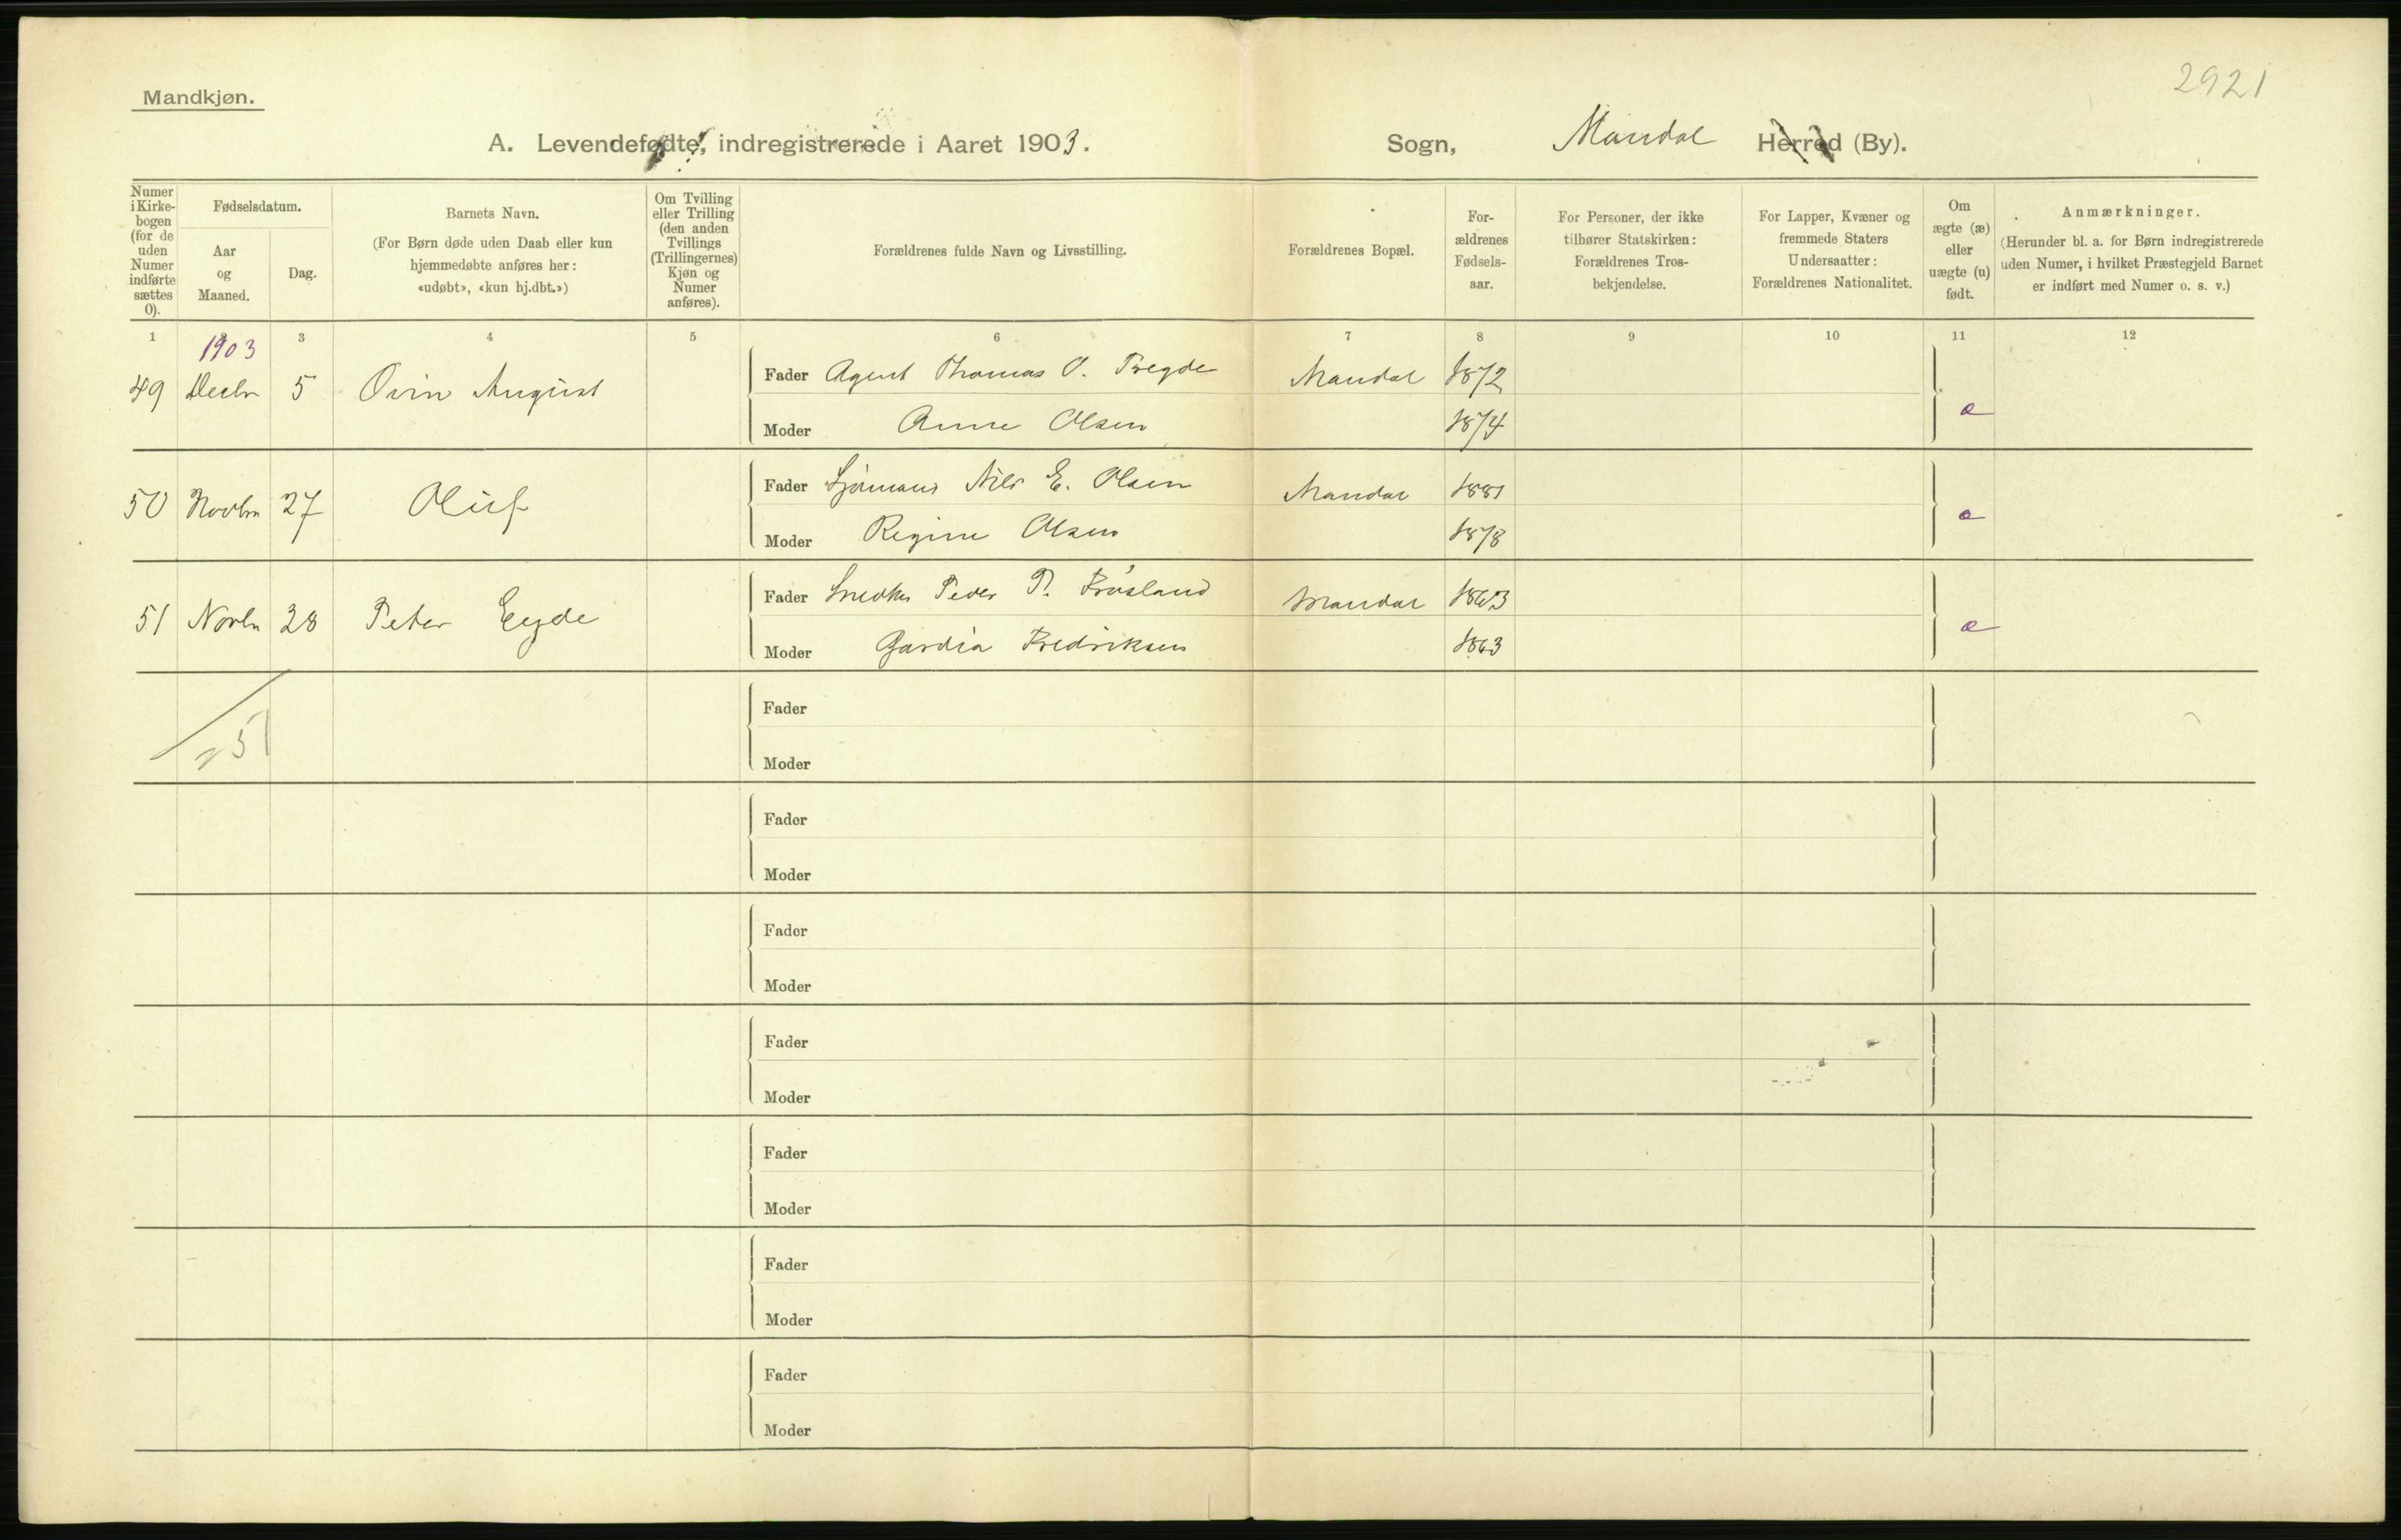 2921
Mandkjøn.
A. Levendefødte, indregistrerede i Aaret 1903. Sogn, Mandal Herred (By).
Numer i Kirkebogen (for de uden Numer indførte sættes 0).
Fødselsdatum.
Aar og Maaned.
Dag.
Barnets Navn.
(For Børn døde uden Daab eller kun hjemmedøbte anføres her: «udøbt», «kun hj.dbt.»)
Om Tvilling eller Trilling (den anden Tvillings (Trillingernes) Kjøn og Numer anføres).
Forældrenes fulde Navn og Livsstilling.
Forældrenes Bopæl.
Forældrenes Fødselsaar.
For Personer, der ikke tilhører Statskirken: Forældrenes Trosbekjendelse.
For Lapper, Kvæner og fremmede Staters Undersaatter: Forældrenes Nationalitet.
Om ægte (æ) eller uægte (u) født.
Anmærkninger.
(Herunder bl. a. for Børn indregistrerede uden Numer, i hvilket Præstegjeld Barnet er indført med Numer o. s. v.)
1 2 3 4 5 6 7 8 9 10 11 12
1903
49 Decbr 5 August Fader Agent Thomas O. Tregde Mandal 1872
Moder Anne Olsen 1874 æ
50 Novbr 27 Oluf Fader Sjømand Nils E. Olsen Mandal 1881
Moder Regine Olsen 1878 æ
51 Novbr 28 Peter Eyde Fader Snedker Peder P. Mandal 1863
Moder Gardia Fredriksen 1863 æ
Fader
51
Moder
Fader
Moder
Fader
Moder
Fader
Moder
Fader
Moder
Fader
Moder
Fader
Moder